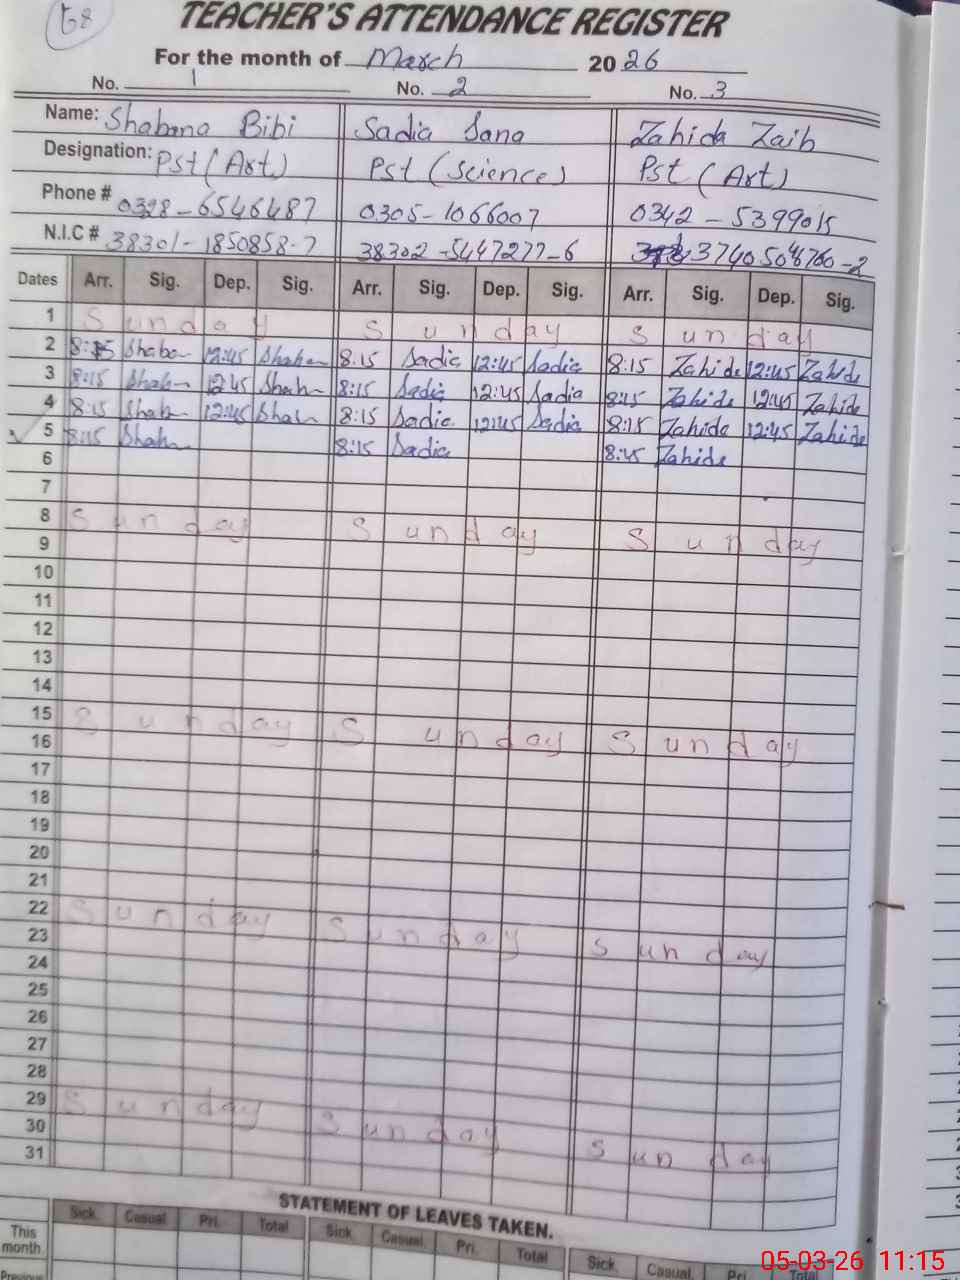 58
TEACHER'S ATTENDANCE REGISTER
For the month of March 2026
No. 1 No. 2 No. 3
Name: Shabana Bibi Sadia Sana Zahida Zaib
Designation: Pst (Art) Pst (Science) Pst (Art)
Phone # 0328-6546487 0305-1066007 0342-5399015
N.I.C # 38301-1850858-7 38302-5447277-6
Dates Arr. Sig. Dep. Sig. Arr. Sig. Dep. Sig. Arr. Sig. Dep. Sig.
1 Sunday Sunday Sunday
2 8:15 Shaba 12:45 Shaba 8:15 Sadia 12:45 Sadia 8:15 Zahida 12:45 Zahida
3 8:15 Shab 12:45 Shab 8:15 Sadia 12:45 Sadia 8:15 Zahida 12:45 Zahida
4 8:15 Shab 12:45 Shab 8:15 Sadia 12:45 Sadia 8:15 Zahida 12:45 Zahida
5 8:15 Shab 8:15 Sadia 8:15 Zahida
6
7
8 Sunday Sunday Sunday
9
10
11
12
13
14
15 Sunday Sunday Sunday
16
17
18
19
20
21
22 Sunday Sunday Sunday
23
24
25
26
27
28
29 Sunday Sunday Sunday
30
31
STATEMENT OF LEAVES TAKEN.
Sick Casual Pri. Total Sick Casual Pri. Total Sick Casual Pri. Total
This month
Previous
05-03-26 11:15